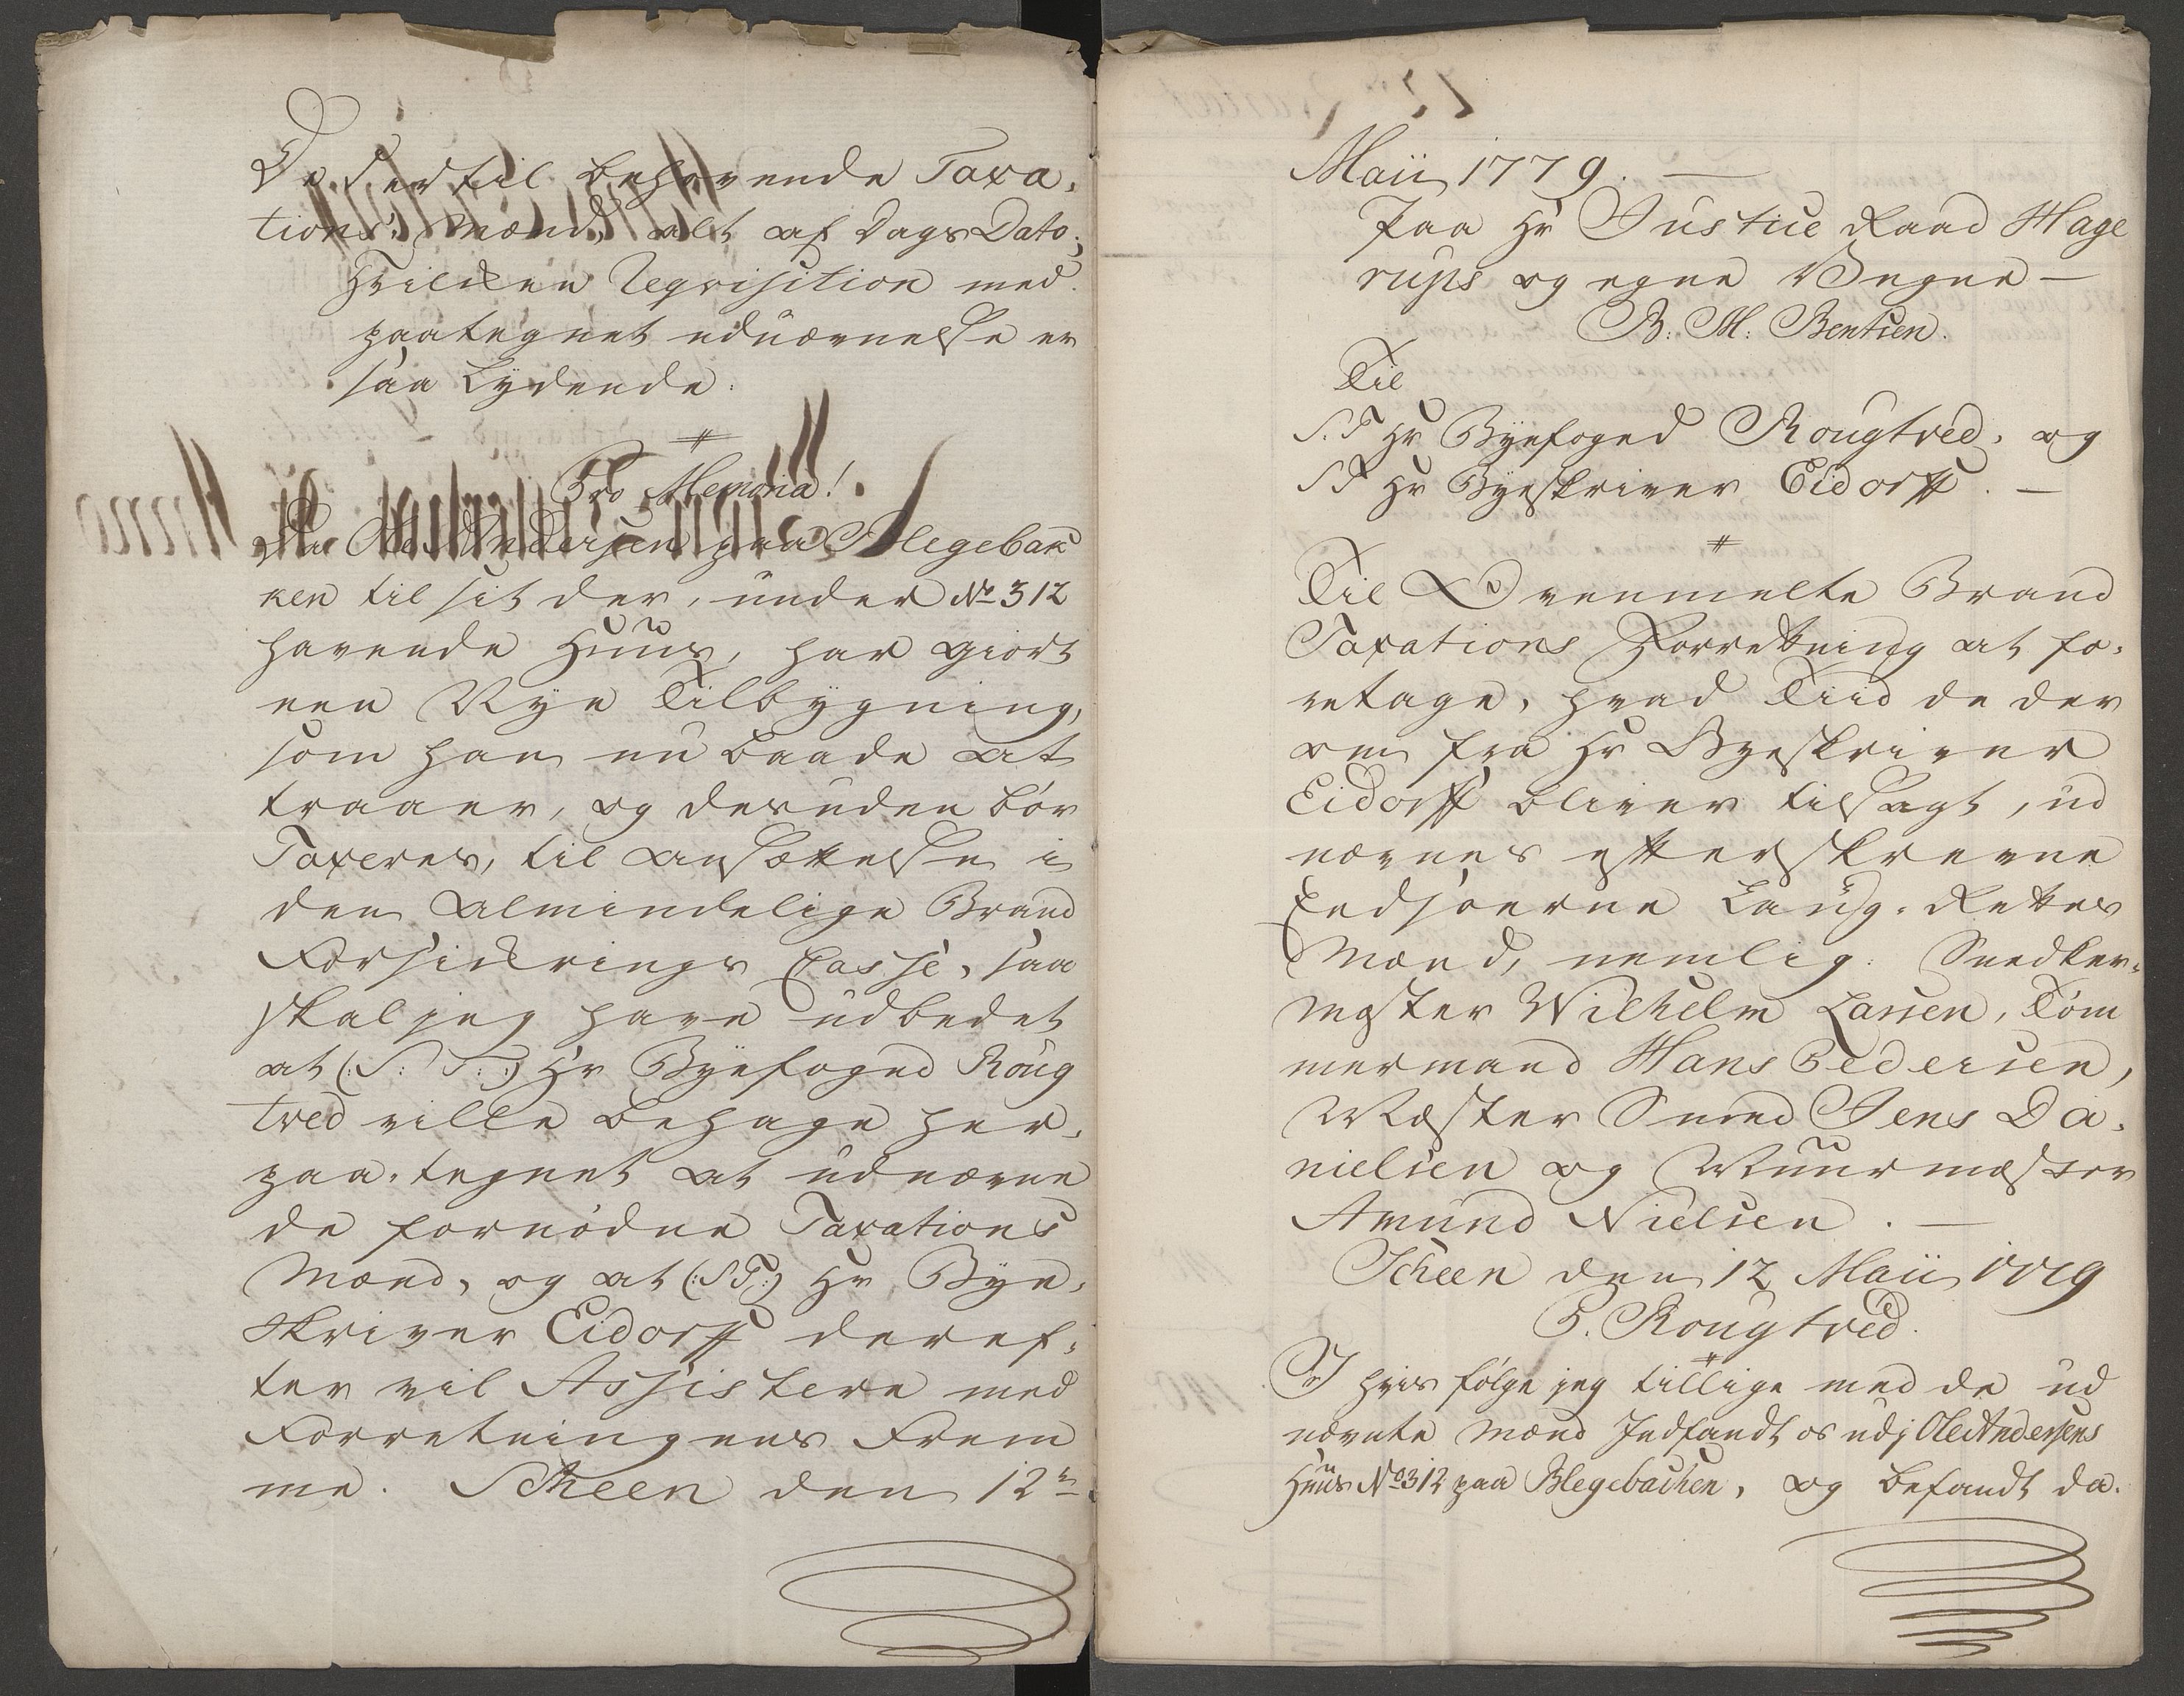 De dertil behøvende Taxa-
tions Mænd, alt af Dags Dato;
Hvilken Reqvisition med
paategnet udnævnelse er
saa Lydende:
Pro Memoria!
Da Ole Andersen paa Blegebak
ken til sit der, under No 312
havende Huus, har giort
een Nye Tilbygning,
som han nu baade at
traaer, og desuden bør
Taxeres, til ansættelse i
den Almindelige Brand
Forsikrings Casse, saa
skal jeg have udbedet
at (:S: T:) Hr Byefoged Roug
tved ville behage her-
paa-tegnet at udnævne
de fornødne Taxations
Mænd, og at (:ST:) Hr Bye-
skriver Eidorff deref-
ter vil Assistere med
Forretningens Frem
me. Scheen den 12te
Maii 1779. —
Paa Hr Justice Raad Hage
rups og egne Vegne —
B: M: Bentsen.
Til
S. T Hr Byefoged Rougtved, og
S T Hr Byeskriver Eidorff. —
Til Ovenmelte Brand
Taxations Forretning at fo-
retage, hvad Tiid de der
om fra Hr Byeskriver
Eidorff bliver tilsagt, ud
nævnes efterskrevne
Eedsoerne Laug-Rettes
Mænd, nemlig: Snedker-
mester Wilhelm Larsen, Tøm
mermand Hans Pedersen,
Mæster Smed Jens Da-
nielsen og Muurmæster
Amund Nielsen. —
Scheen den 12 Maii 1779
P. Rougtved.
I hvis følge jeg tillige med de ud
nævnte Mænd Indfandt os udj Ole Andersens
Huus No 312 paa Blegebachen, og befandt da-